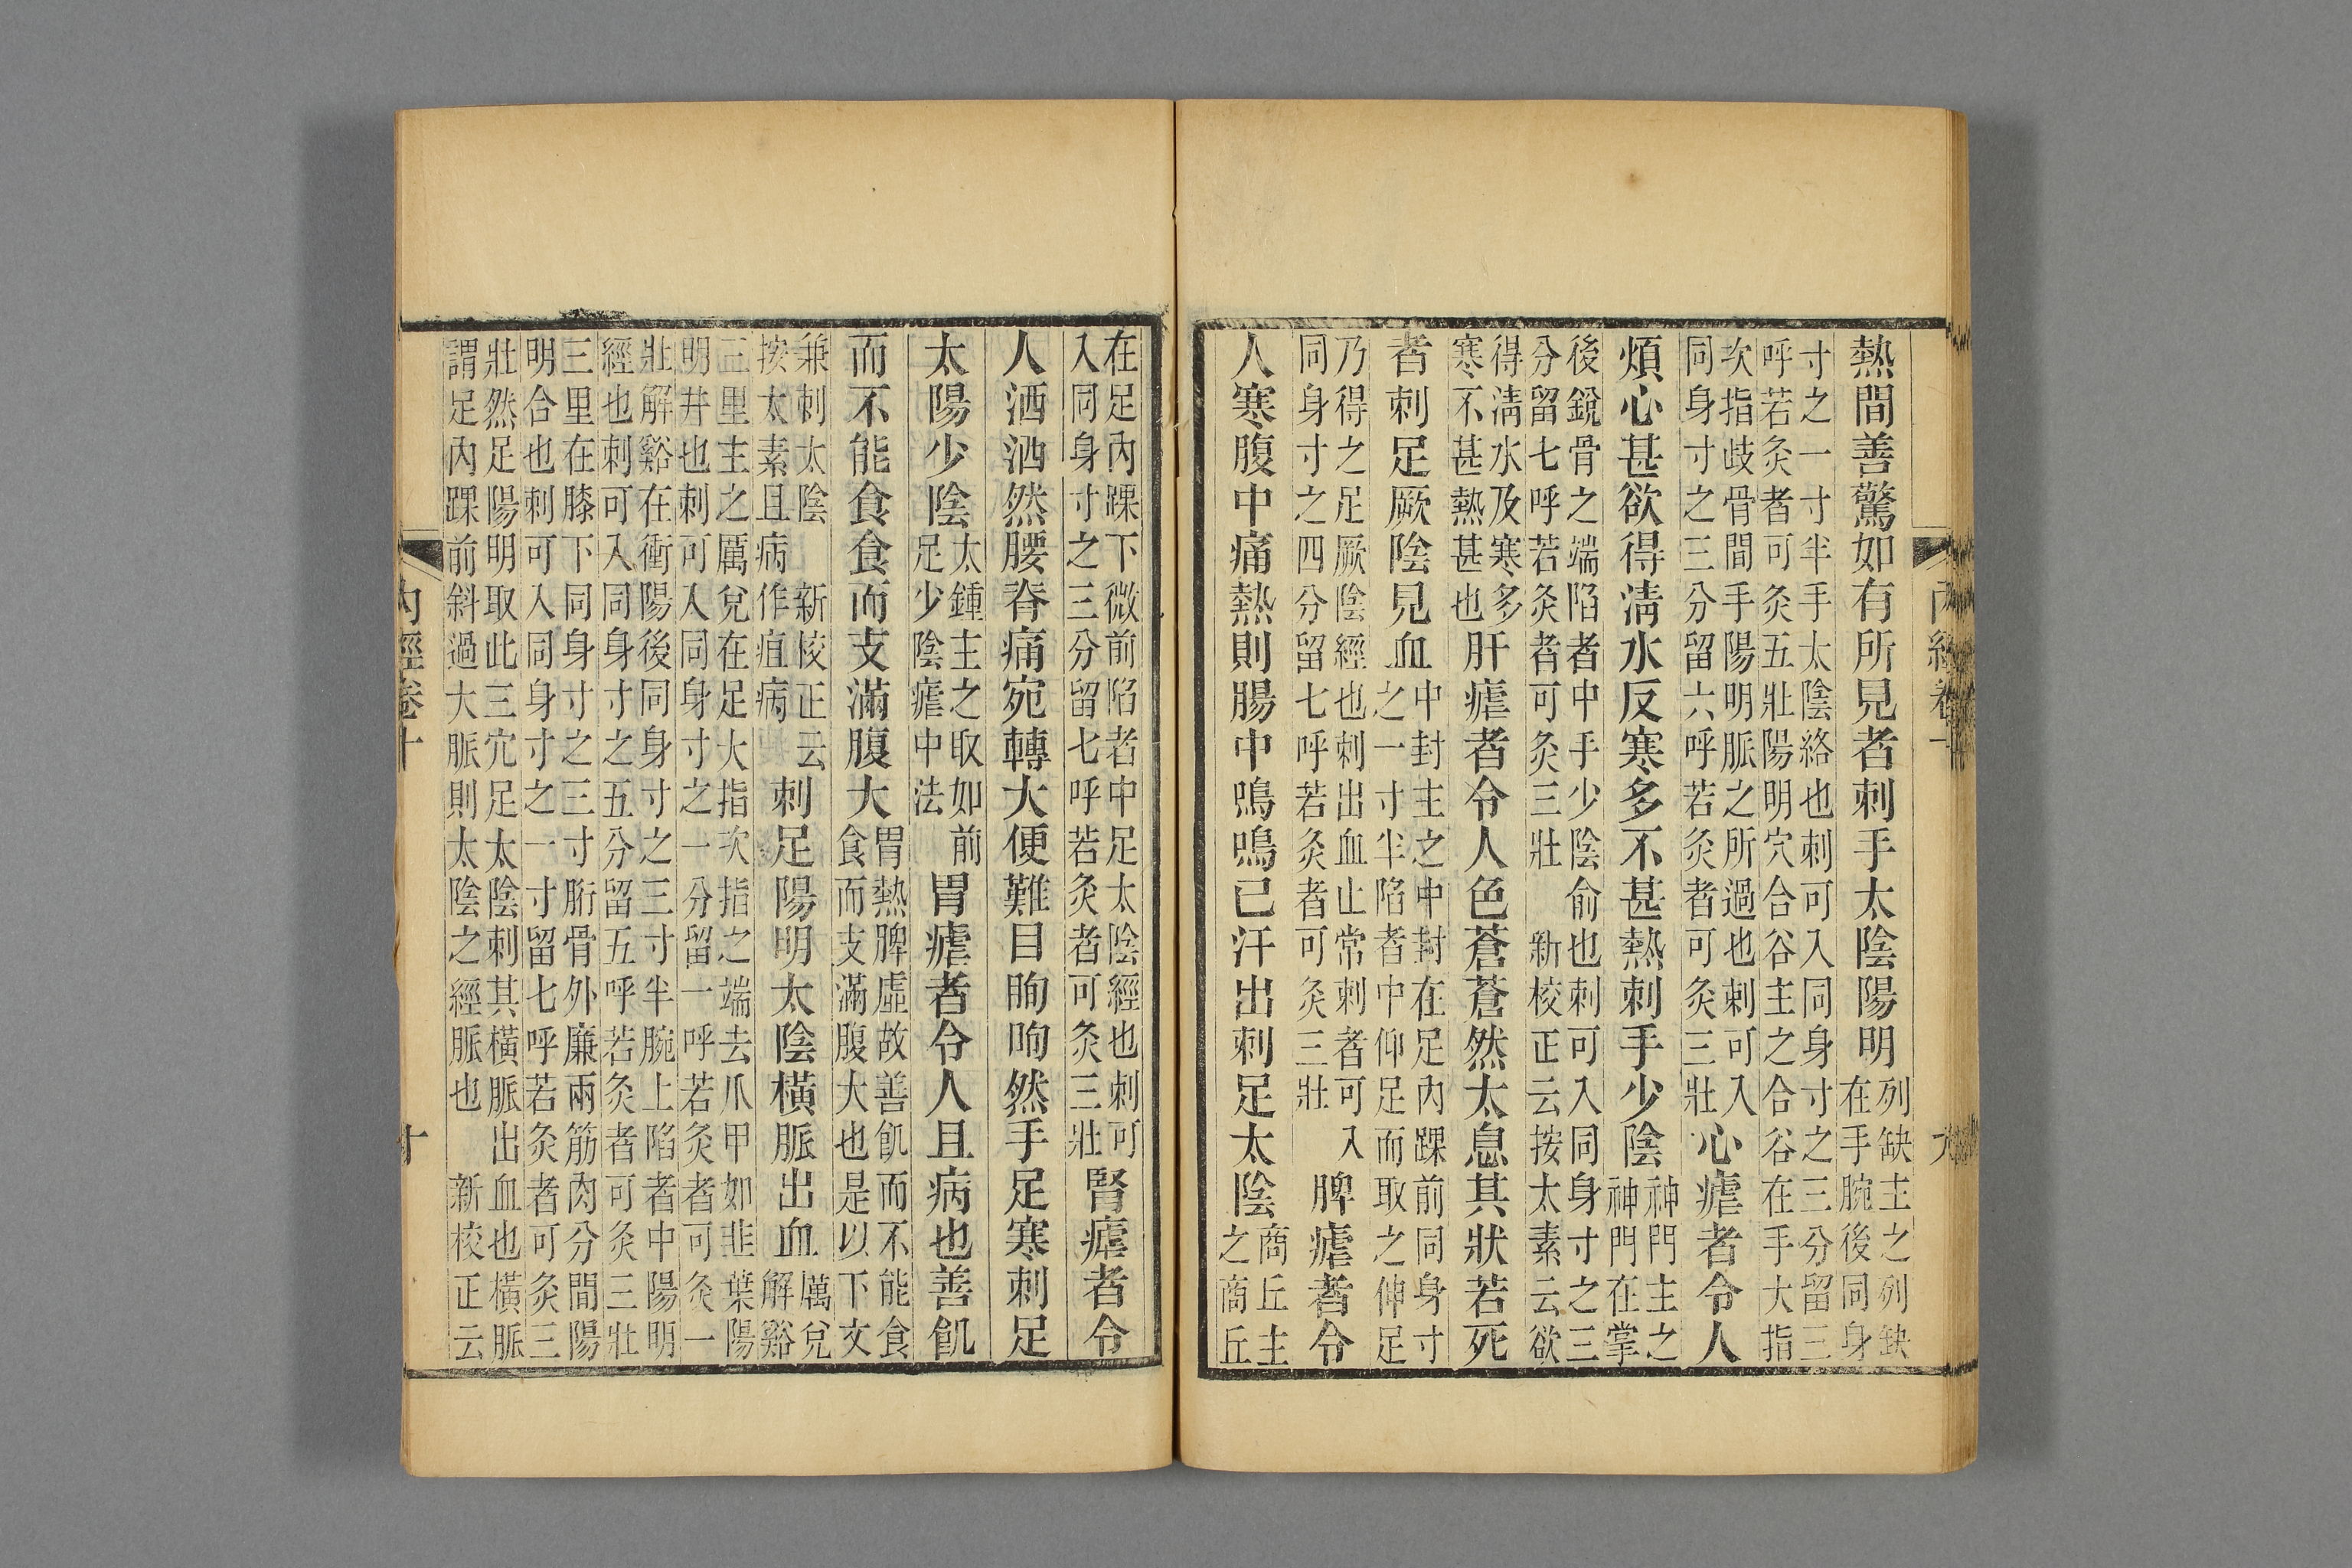 熱間善驚如有所見者刺手太陰陽明列缺主之列缺
在手腕後同身
寸之一寸半手太陰絡也刺可入同身寸之三分留三
呼若灸者可灸五壯陽明穴合谷主之合谷在手大指
次指歧骨間手陽明脈之所過也刺可入
同身寸之三分留六呼若灸者可灸三壯心瘧者令人
煩心甚欲得淸水反寒多不甚熱刺手少陰神門主之
神門在掌
後銳骨之端陷者中手少陰俞也刺可入同身寸之三
分留七呼若灸者可灸三壯 新校正云按太素云欲
得淸水及寒多
寒不甚熱甚也肝瘧者令人色蒼蒼然太息其狀若死
者刺足厥陰見血中封主之中封在足內踝前同身寸
之一寸半陷者中仰足而取之伸足
乃得之足厥陰經也刺出血止常刺者可入
同身寸之四分留七呼若灸者可灸三壯脾瘧者令
人寒腹中痛熱則腸中鳴鳴已汗出刺足太陰商丘主
之商丘
內經卷十
九
在足內踝下微前陷者中足太陰經也刺可
入同身寸之三分留七呼若灸者可灸三壯腎瘧者令
人洒洒然腰脊痛宛轉大便難目眴眴然手足寒刺足
太陽少陰太鍾主之取如前
足少陰瘧中法胃瘧者令人且病也善飢
而不能食食而支滿腹大胃熱脾虛故善飢而不能食
食而支滿腹大也是以下文
兼刺太陰 新校正云
按太素且病作疸病刺足陽明太陰橫脈出血厲兌
解谿
三里主之厲兌在足大指次指之端去爪甲如韭葉陽
明井也刺可入同身寸之一分留一呼若灸者可灸一
壯解谿在衝陽後同身寸之三寸半腕上陷者中陽明
經也刺可入同身寸之五分留五呼若灸者可灸三壯
三里在膝下同身寸之三寸胻骨外廉兩筋肉分間陽
明合也刺可入同身寸之一寸留七呼若灸者可灸三
壯然足陽明取此三穴足太陰刺其橫脈出血也橫脈
謂足內踝前斜過大脈則太陰之經脈也 新校正云
內經卷十
十